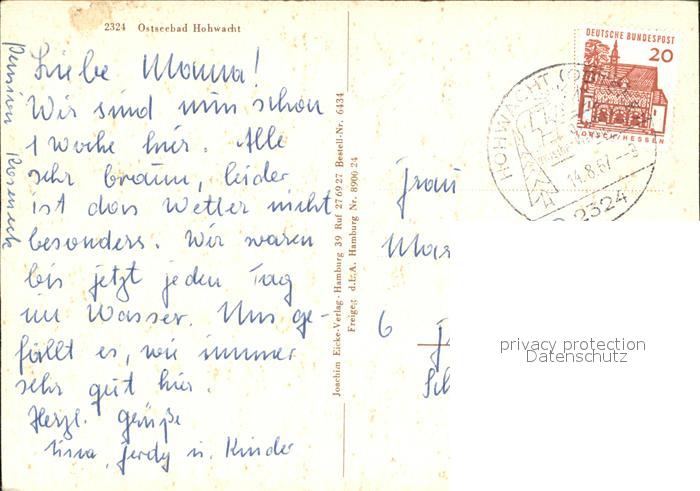 2324 Ostseebad Hohwacht
Liebe Mama!
Wir sind nun schon
1 Woche hier. Alle
sehr braun, leider
ist das Wetter nicht
besonders. Wir waren
bis jetzt jeden Tag
im Wasser. Uns ge-
fällt es, wie immer
sehr gut hier.
Herzl. Grüße
u. Kinder
Pension
Joachim Eicke-Verlag - Hamburg 39 Ruf 27 69 27 Bestell-Nr. 6434
Freigeg. d. L. A. Hamburg Nr. 8900 24
DEUTSCHE BUNDESPOST
20
LORSCH/HESSEN
HOHWACHT
14.8.67
2324
Frau
6
privacy protection
Datenschutz